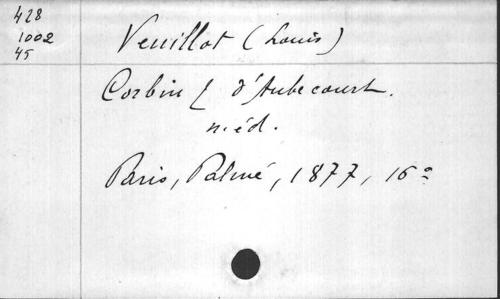 428
1002
45
Veuillot (Louis)
Corbin & d'Aubecourt.
n. éd.
Paris, Palmé, 1877, 16º